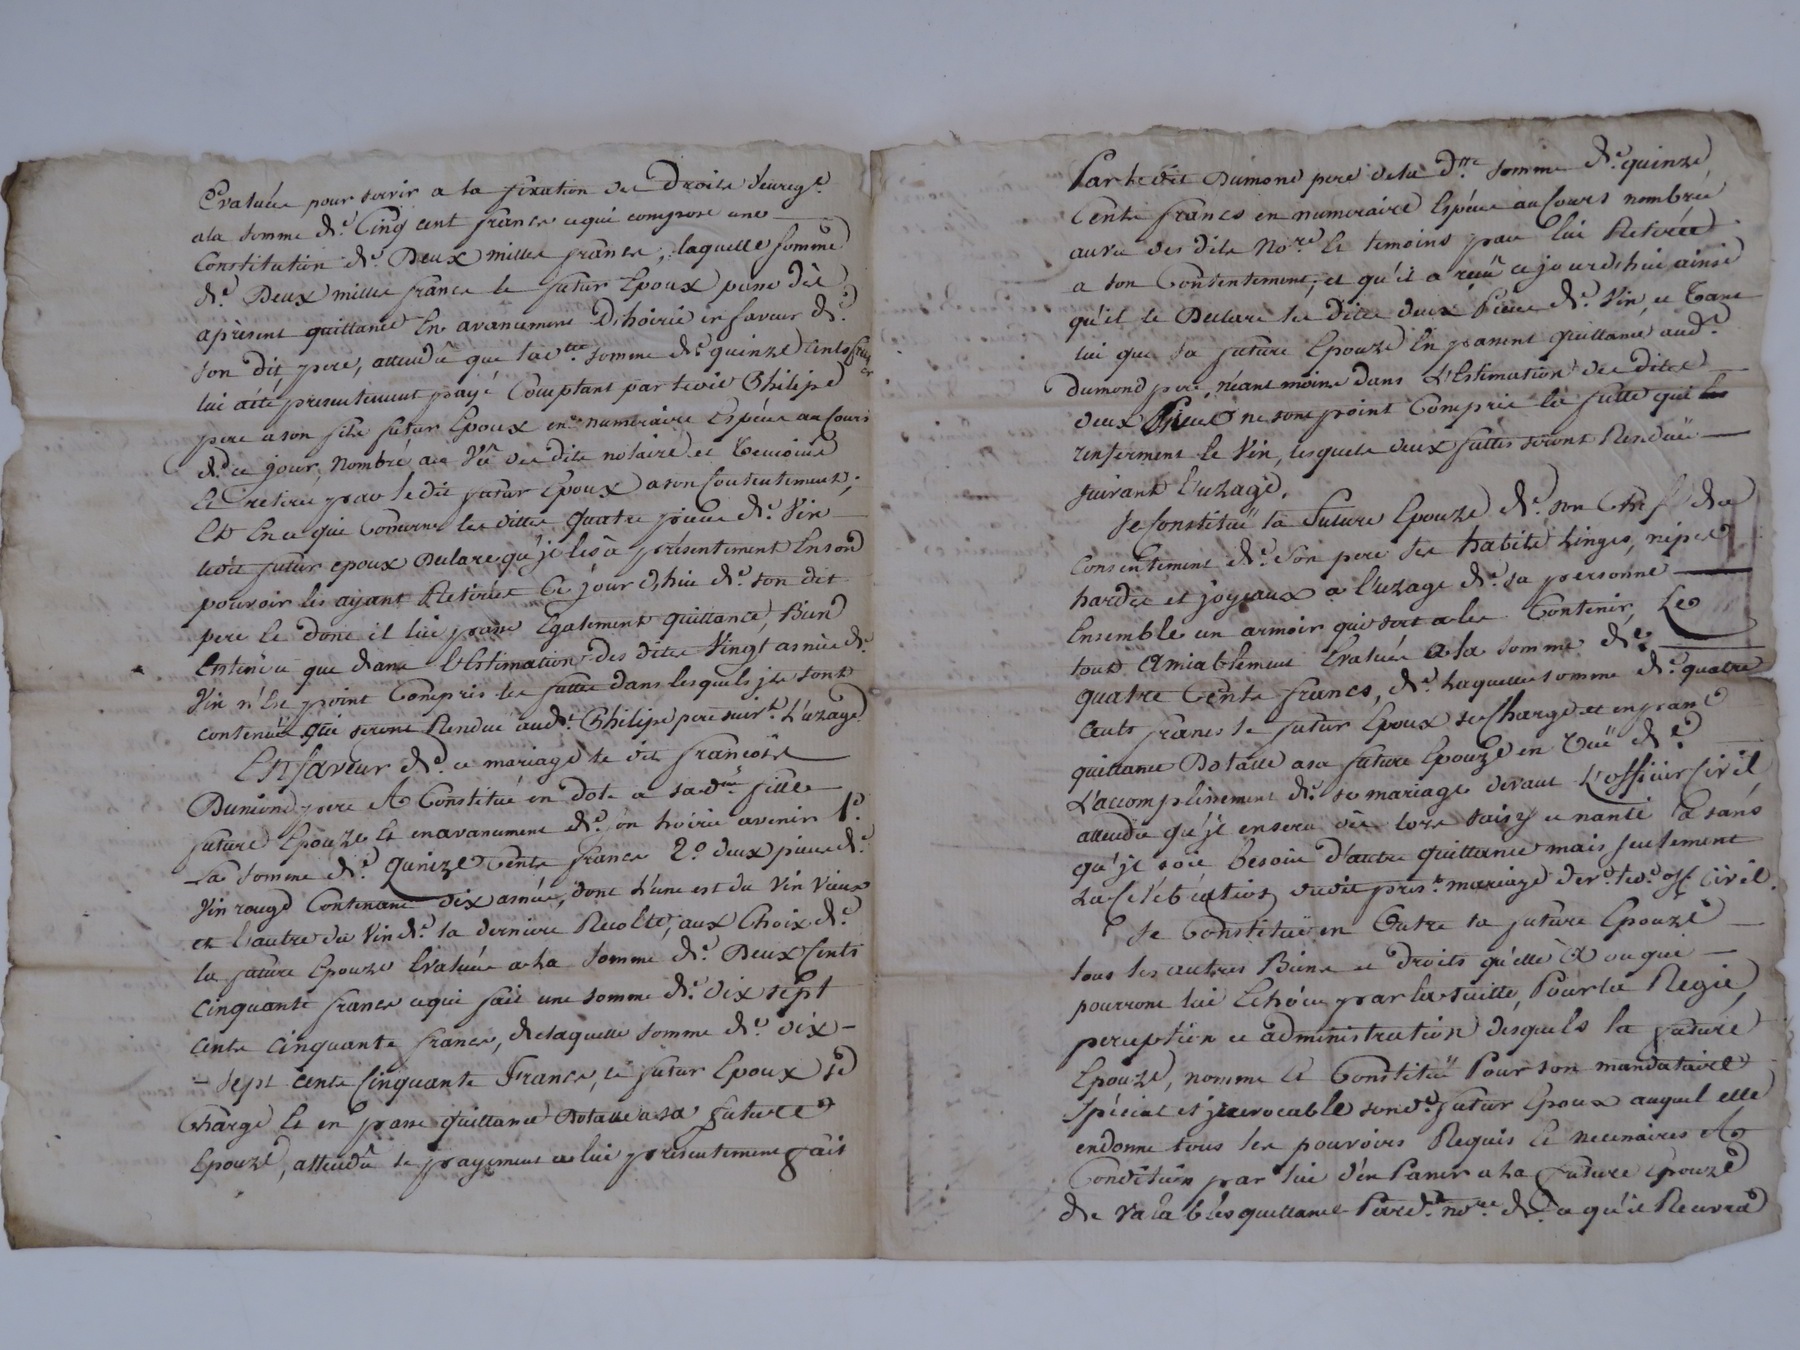 Evaluée pour servir a la fixation des Droits d'enregt.
a la somme de. Cinq cent francs ce qui compose une
Constitution de. Deux milles francs, laquelle somme
de. Deux milles francs le futur Epoux passe dès
aprésent quittance En avancement D'hoirie en faveur de.
son dit pere, attendû que lad.tte somme de. quinze Cents francs
lui a été présentement payé Comptant par ledit Philipe
pere a son fils futur Epoux en numéraire Espéces au Cours
de. ce jour, nombré au Vû des dits notaire et Temoins
Et retirée par le dit futur Epoux a son Contentement;
Et En ce qui Concerne les dittes quatre pieces de. Vin
ledit futur epoux Declare qu'je les à présentement En son
pouvoir les ayant Retirées Ce jour d'hui de. son dit
pere le dont il lui passe Egalement quittance, Bien
Entendu que dans l'Estimation des dites Vingt asnées de.
Vin n'Est point Compris les futtes dans lesquels je sont
contenus qui seront Rendue audt. Philipe pere suivt. L'uzage
En faveur de. ce mariage le dit françois
Dumond pere A Constitué en dote a sad.te fille
future Epouze Et en avancement de. son hoirie avenir 1°.
La somme de. Quinze Cents francs 2° deux pieces de.
Vin rouge Contenant dix asnées, dont L'une est du Vin Vieux
et l'autre du Vin de. la derniere Recolte, aux Choix de.
la future Epouze Evaluée a la Somme de. Deux Cents
Cinquante francs ce qui fait une somme de. dix sept
cents cinquante francs, de laquelle somme de. dix-
-sept cents Cinquante Francs, le futur Epoux se
Charge Et en passe quittance Dotalle a sa future
Epouze, attendû le payement a lui présentement fait
Par ledit Dumond pere de la D.tte somme de. quinze
Cents francs en numéraire Espéces au Cours nombrée
au vu des dits No.re Et temoins par lui Retirée
a son Contentement, et qu'il a reçu ce jourd'hui ainsi
qu'il le Declare les Dittes deux Pieces de. Vin, et Tant
lui que sa future Epouze En passent quittance audt.
dumond pere, néant moins dans L'Estimation des dites
deux Pieces ne sont point Compris les futtes qui
renferment le Vin, lesquels deux futtes seront Rendüe
suivant l'uzage.
Se Constitüe la Future Epouze de. son Chef du
Consentement de. Son pere Ses habits Linges, nipes
hardes et joyeaux a l'uzage de. sa personne
Ensemble un armoir qui sert a les Contenir, Le
tout Amiablement Evaluée a la somme de.
quatre Cents francs, de. Laquelle somme de. quatre
Cents francs le futur Epoux se Charge et en passe
quittance Dotalle a sa future Epouze en Vuë de.
L'accomplissement de. se mariage devant L'officier Civil
attendu qu'je en sera dès lors saisy et nanti Et sans
qu'je soit besoin d'autre quittance mais seulement
La Célébration dudit prést. mariage devt. led. off. Civil.
Se Constitüe en Outre la future Epouze
tous les autres Biens et droits qu'elle A ou qui
pourront lui Echéoir par la suitte, Pour la Regie,
perception et administration desquels la future
Epouze, nomme Et Constitüe Pour son mandataire
Spécial et jrrevocable sond. futur Epoux auquel elle
en donne tous les pouvoirs Requis Et necessaires A
Condition par lui d'en Passer a la future Epouze
de valables quittances Pardt. no.re de. Ce qu'il Recevra